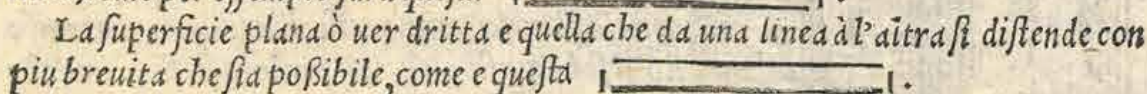 La ſuperficie plana ò uer dritta e quella che da una linea à l'altra ſi diſtende con
piu breuita che ſia poßibile, come e queſta [ ].